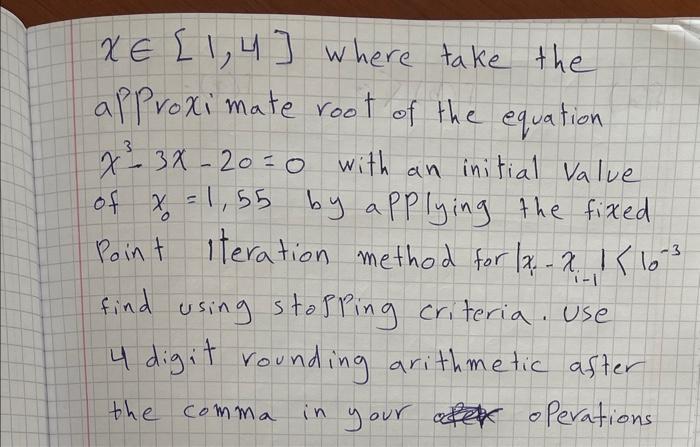 x ∈ [1,4] where take the
approximate root of the equation
x³- 3x - 20 = 0 with an initial Value
of x₀ = 1,55 by applying the fixed
Point Iteration method for |xᵢ - xᵢ₋₁| < 10⁻³
find using stopping criteria. Use
4 digit rounding arithmetic after
the comma in your operations